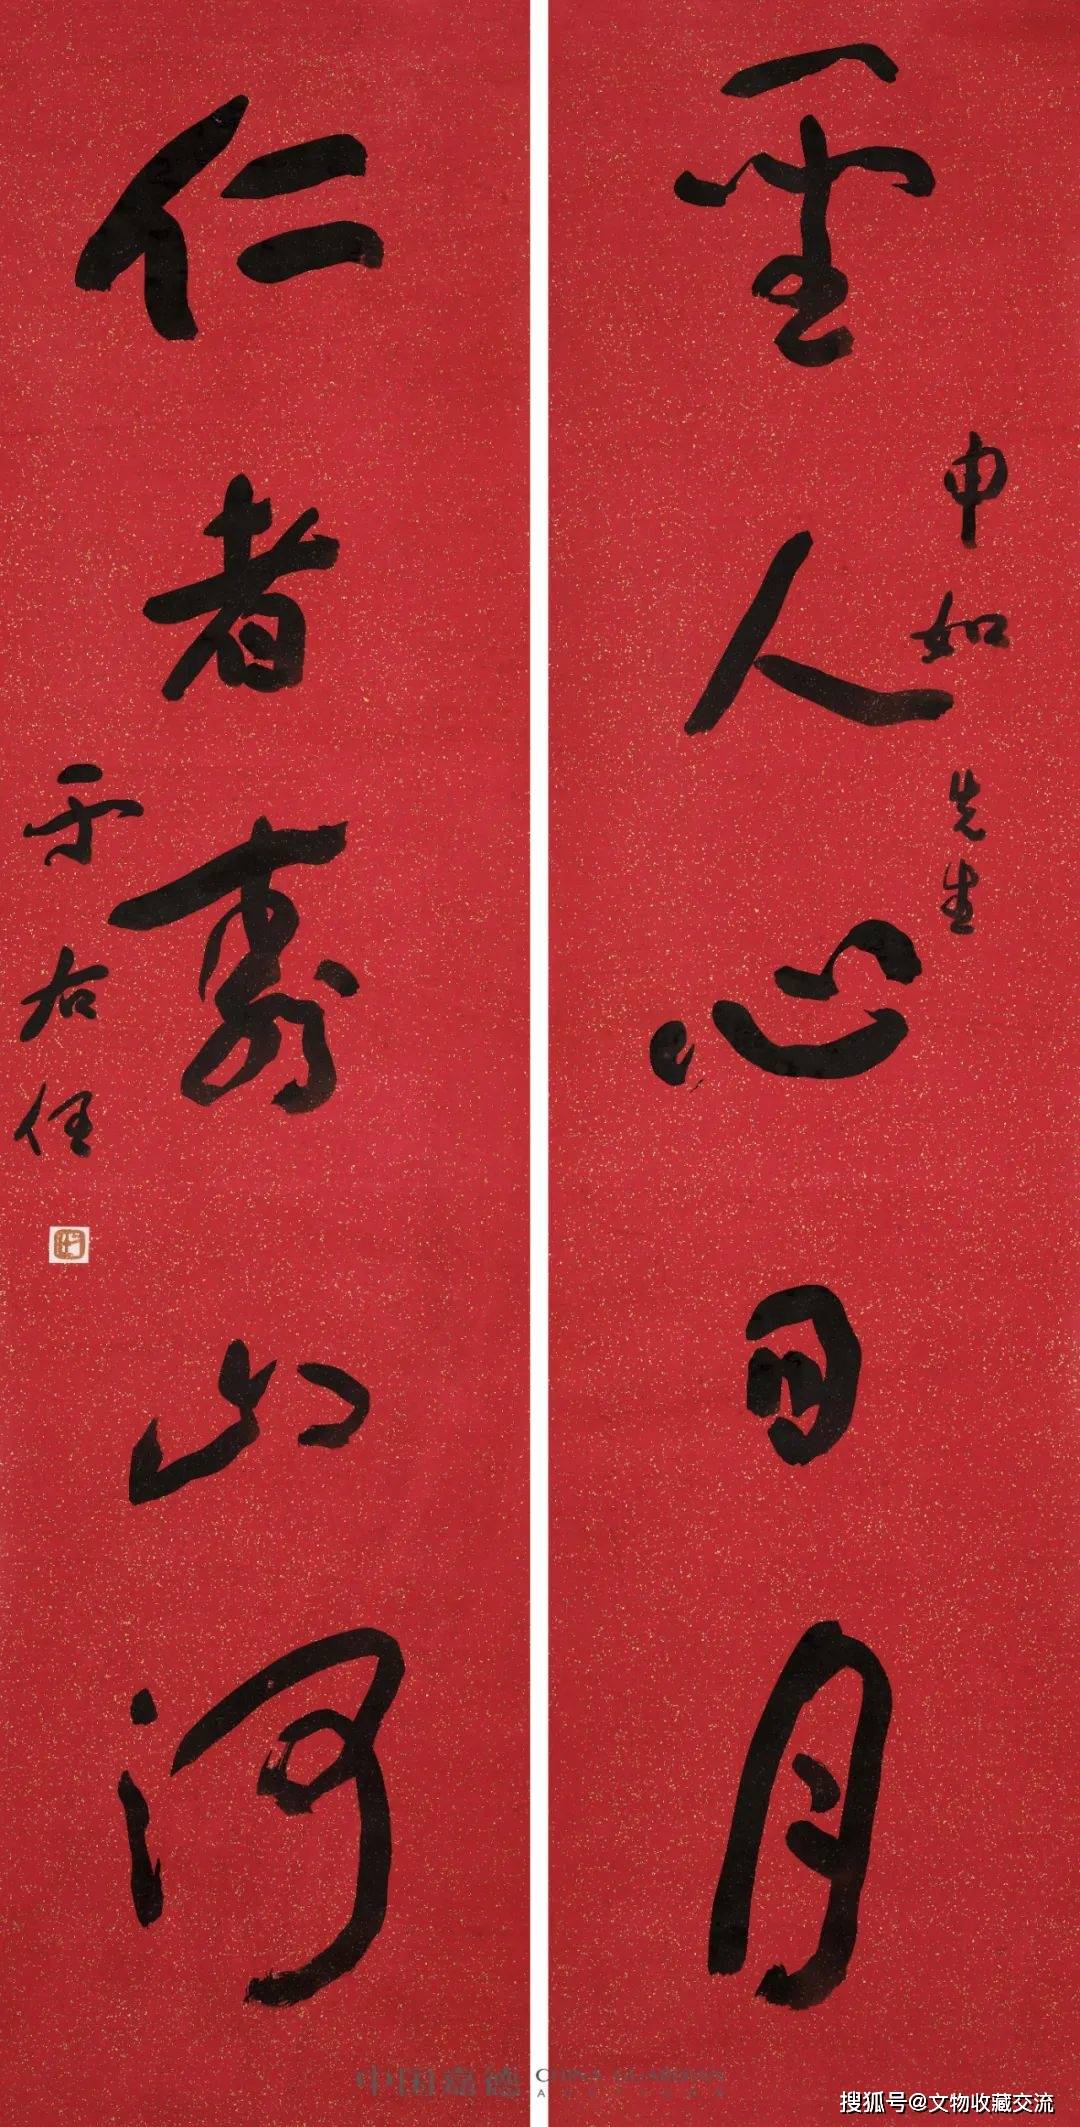 聖人心日月
申如先生
仁者壽山河
于右任
中国嘉德 CHINA GUARDIAN
搜狐号@文物收藏交流